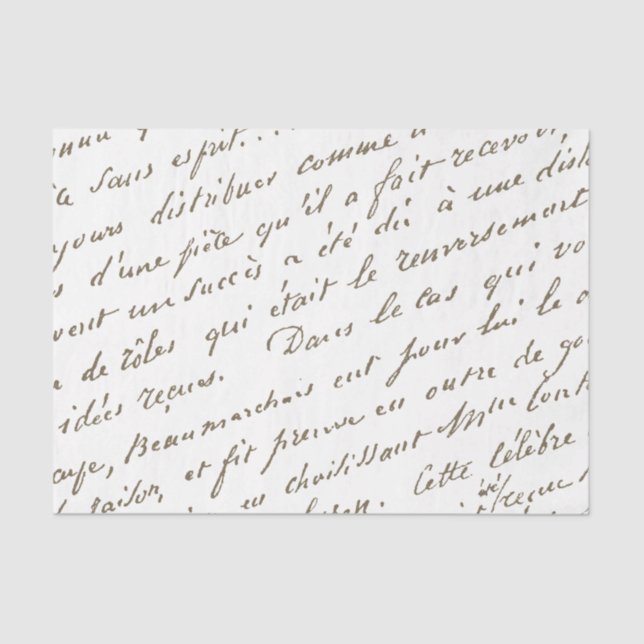 sans esprit...
distribuer comme
s d'une pièce qu'il a fait recevoir,
vent un succès a été dû à une dist
de rôles qui était le renversement
idées reçues. Dans le cas qui vo
Beaumarchais eut pour lui le
raison, et fit preuve en outre de go
en choisissant Mme Cont
Cette célèbre
été reçue